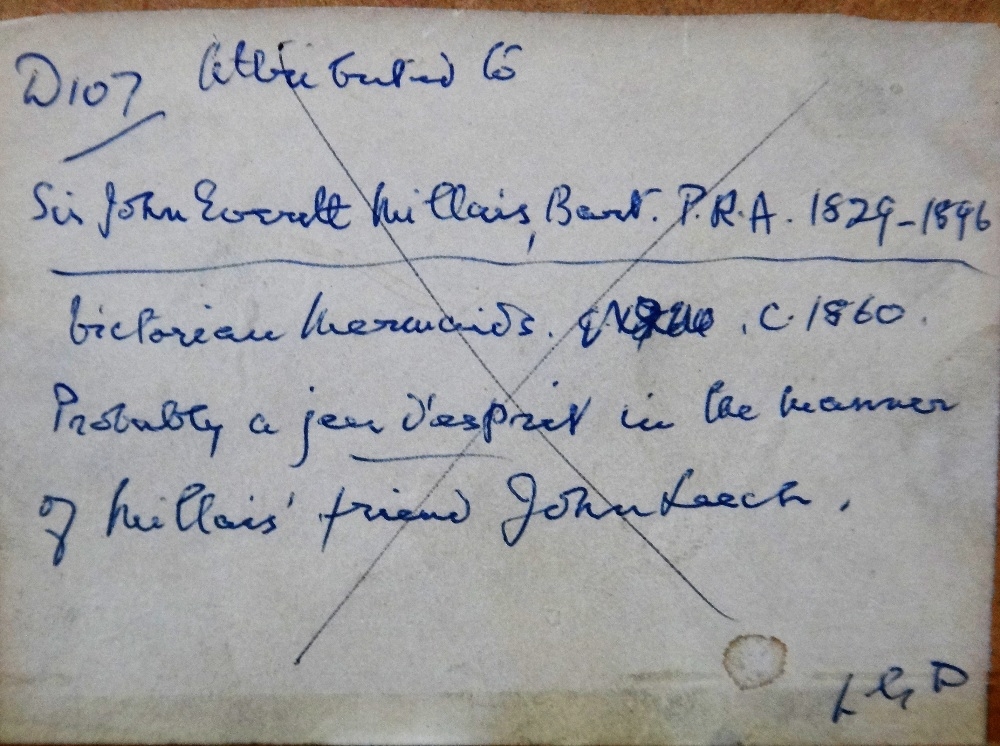 D107 Attributed to
Sir John Everett Millais, Bart. P.R.A. 1829-1896
Victorian Mermaids. . c.1860.
Probably a jeu d'esprit in the manner
of Millais' friend John Leech.
LGD